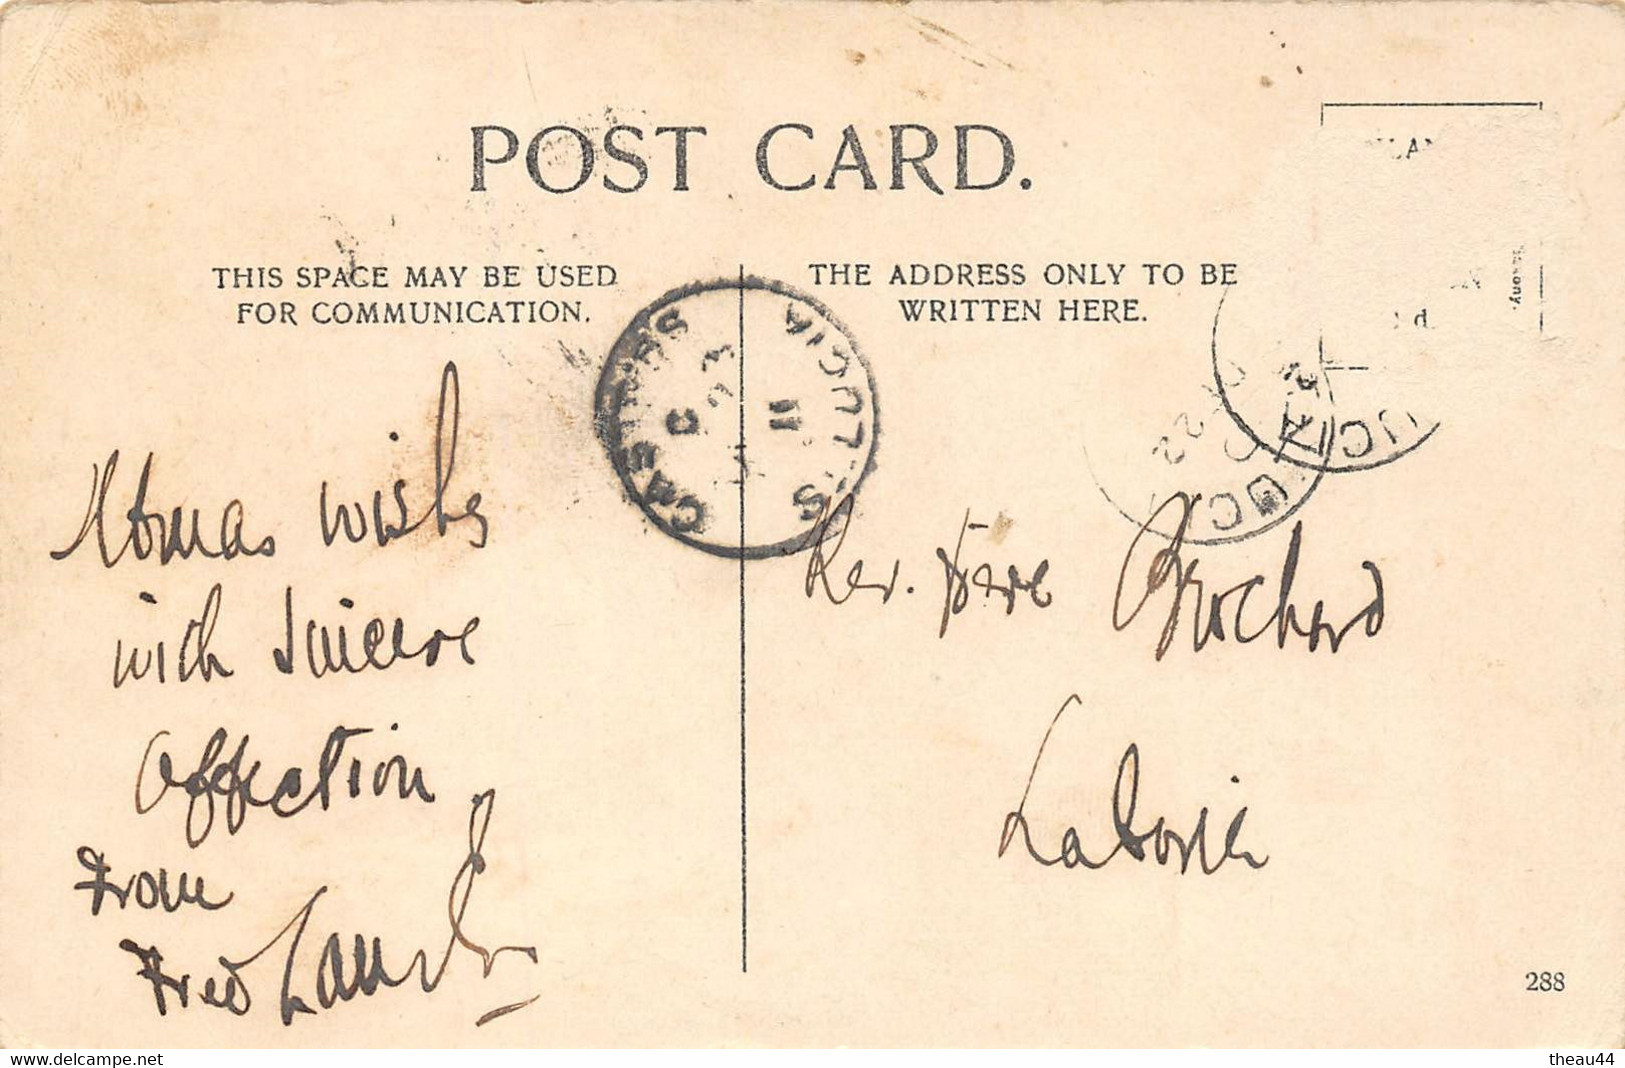 POST CARD.
THIS SPACE MAY BE USED
FOR COMMUNICATION.
THE ADDRESS ONLY TO BE
WRITTEN HERE.
CASTRIES
ST. LUCIA
C
11
UCIA
22
UC
C
d
Xtmas wishes
with sincere
affection
from
Fred
Rev. Père
Laborie
288
www.delcampe.net
theau44